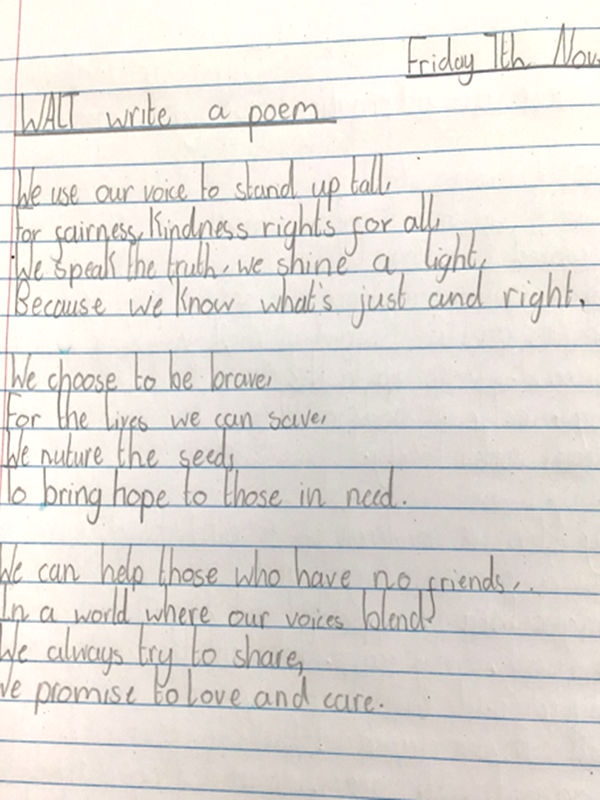 Friday 7th Nov
WALT write a poem
We use our voice to stand up tall,
for fairness, kindness rights for all,
We speak the truth, we shine a light,
Because we know what's just and right.
We choose to be brave,
For the lives we can save,
We nuture the seed,
To bring hope to those in need.
We can help those who have no friends,.
In a world where our voices blend
We always try to share,
We promise to love and care.